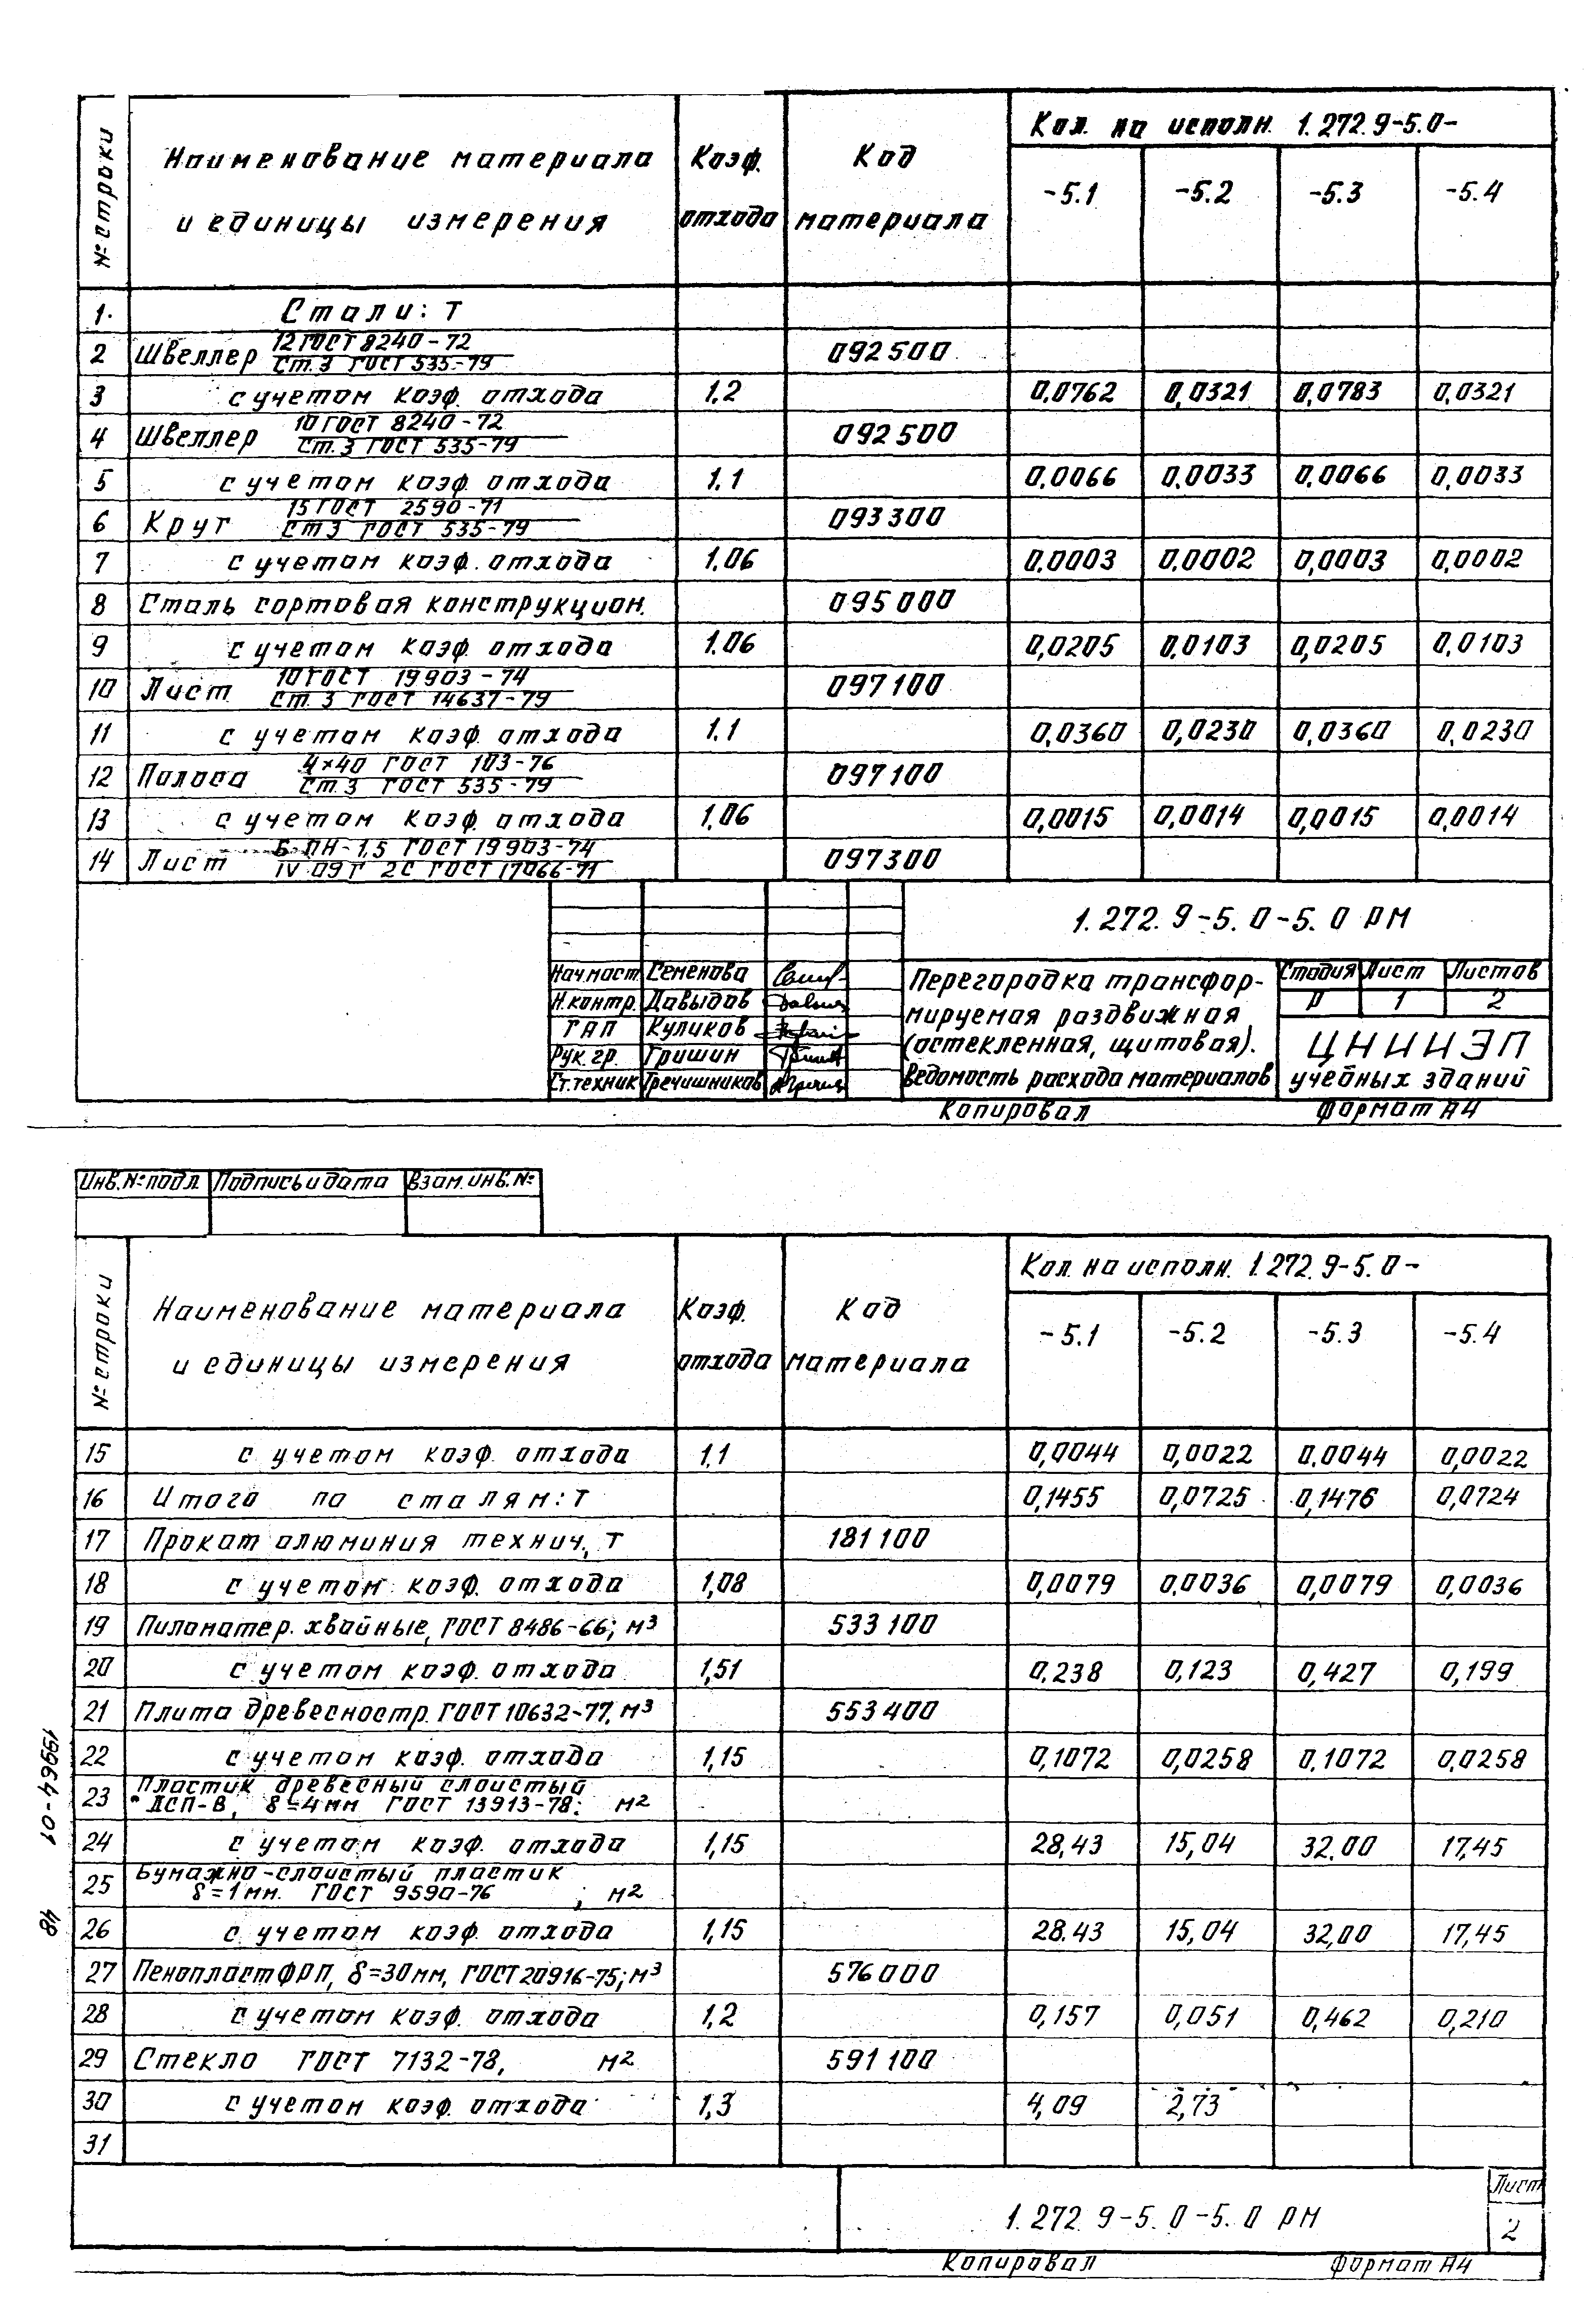 № строки
Наименование материала и единицы измерения
Коэф. отхода
Код материала
Кол. на исполн. 1.272.9-5.0-
-5.1 -5.2 -5.3 -5.4
1. Стали: т
2 Швеллер 12 ГОСТ 8240-72 / Ст. 3 ГОСТ 535-79 092500
3 с учетом коэф. отхода 1.2 0.0762 0,0321 0,0783 0,0321
4 Швеллер 10 ГОСТ 8240-72 / Ст. 3 ГОСТ 535-79 092500
5 с учетом коэф. отхода 1.1 0.0066 0.0033 0.0066 0.0033
6 Круг 15 ГОСТ 2590-71 / Ст 3 ГОСТ 535-79 093300
7 с учетом коэф. отхода 1.06 0.0003 0.0002 0,0003 0.0002
8 Сталь сортовая конструкцион. 095000
9 с учетом коэф. отхода 1.06 0,0205 0,0103 0,0205 0,0103
10 Лист 10 ГОСТ 19903-74 / Ст. 3 ГОСТ 14637-79 097100
11 с учетом коэф. отхода 1.1 0,0360 0,0230 0,0360 0,0230
12 Полоса 4×40 ГОСТ 103-76 / Ст. 3 ГОСТ 535-79 097100
13 с учетом коэф. отхода 1,06 0,0015 0,0014 0,0015 0,0014
14 Лист Б-ПН-1,5 ГОСТ 19903-74 / IV 09Г 2С ГОСТ 17066-71 097300
1.272.9-5.0-5.0 РМ
Нач.маст. Семенова
Н.контр. Давыдов
ГАП Куликов
Рук. гр. Гришин
Ст.техник Гречишников
Перегородка трансфор-
мируемая раздвижная
(остекленная, щитовая).
Ведомость расхода материалов
Стадия Лист Листов
Р 1 2
ЦНИИЭП
учебных зданий
Копировал Формат А4
Инв.№ подл. Подпись и дата Взам. инв. №
№ строки
Наименование материала и единицы измерения
Коэф. отхода
Код материала
Кол. на исполн. 1.272.9-5.0-
-5.1 -5.2 -5.3 -5.4
15 с учетом коэф. отхода 1.1 0,0044 0,0022 0.0044 0,0022
16 Итого по сталям: т 0,1455 0,0725 0,1476 0,0724
17 Прокат алюминия технич., т 181100
18 с учетом коэф. отхода 1,08 0,0079 0.0036 0,0079 0,0036
19 Пиломатер. хвойные, ГОСТ 8486-66; м³ 533100
20 с учетом коэф. отхода 1,51 0,238 0,123 0,427 0,199
21 Плита древесностр. ГОСТ 10632-77, м³ 553400
22 с учетом коэф. отхода 1,15 0,1072 0,0258 0,1072 0,0258
23 Пластик древесный слоистый
ДСП-В, δ=4мм ГОСТ 13913-78; м²
24 с учетом коэф. отхода 1,15 28,43 15,04 32.00 17,45
25 Бумажно-слоистый пластик
δ=1мм. ГОСТ 9590-76 ; м²
26 с учетом коэф. отхода 1,15 28.43 15,04 32,00 17,45
27 Пенопласт ФРП, δ=30мм, ГОСТ 20916-75; м³ 576000
28 с учетом коэф. отхода 1,2 0,157 0,051 0,462 0,210
29 Стекло ГОСТ 7132-78, м² 591100
30 с учетом коэф. отхода 1,3 4,09 2,73
31
19964-01 48
1.272.9-5.0-5.0 РМ
Лист
2
Копировал Формат А4